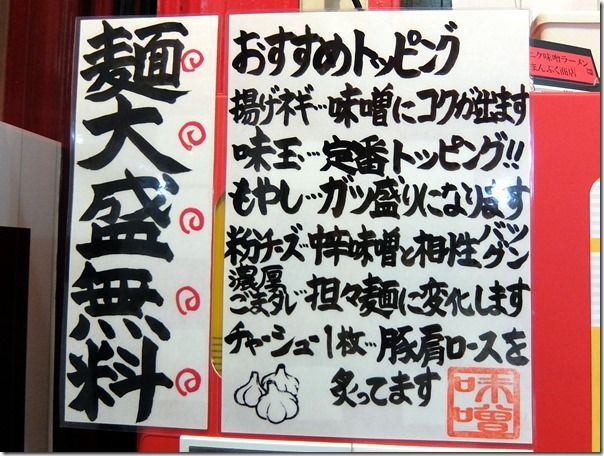 麺大盛無料
おすすめトッピング
揚げネギ…味噌にコクが出ます
味玉…定番トッピング!!
もやし…ガツ盛りになります
粉チーズ…中辛味噌と相性バツグン
濃厚ごまダレ…担々麺に変化します
チャーシュー1枚…豚肩ロースを
炙ってます
味噌
味噌ラーメン
まんぷく商店